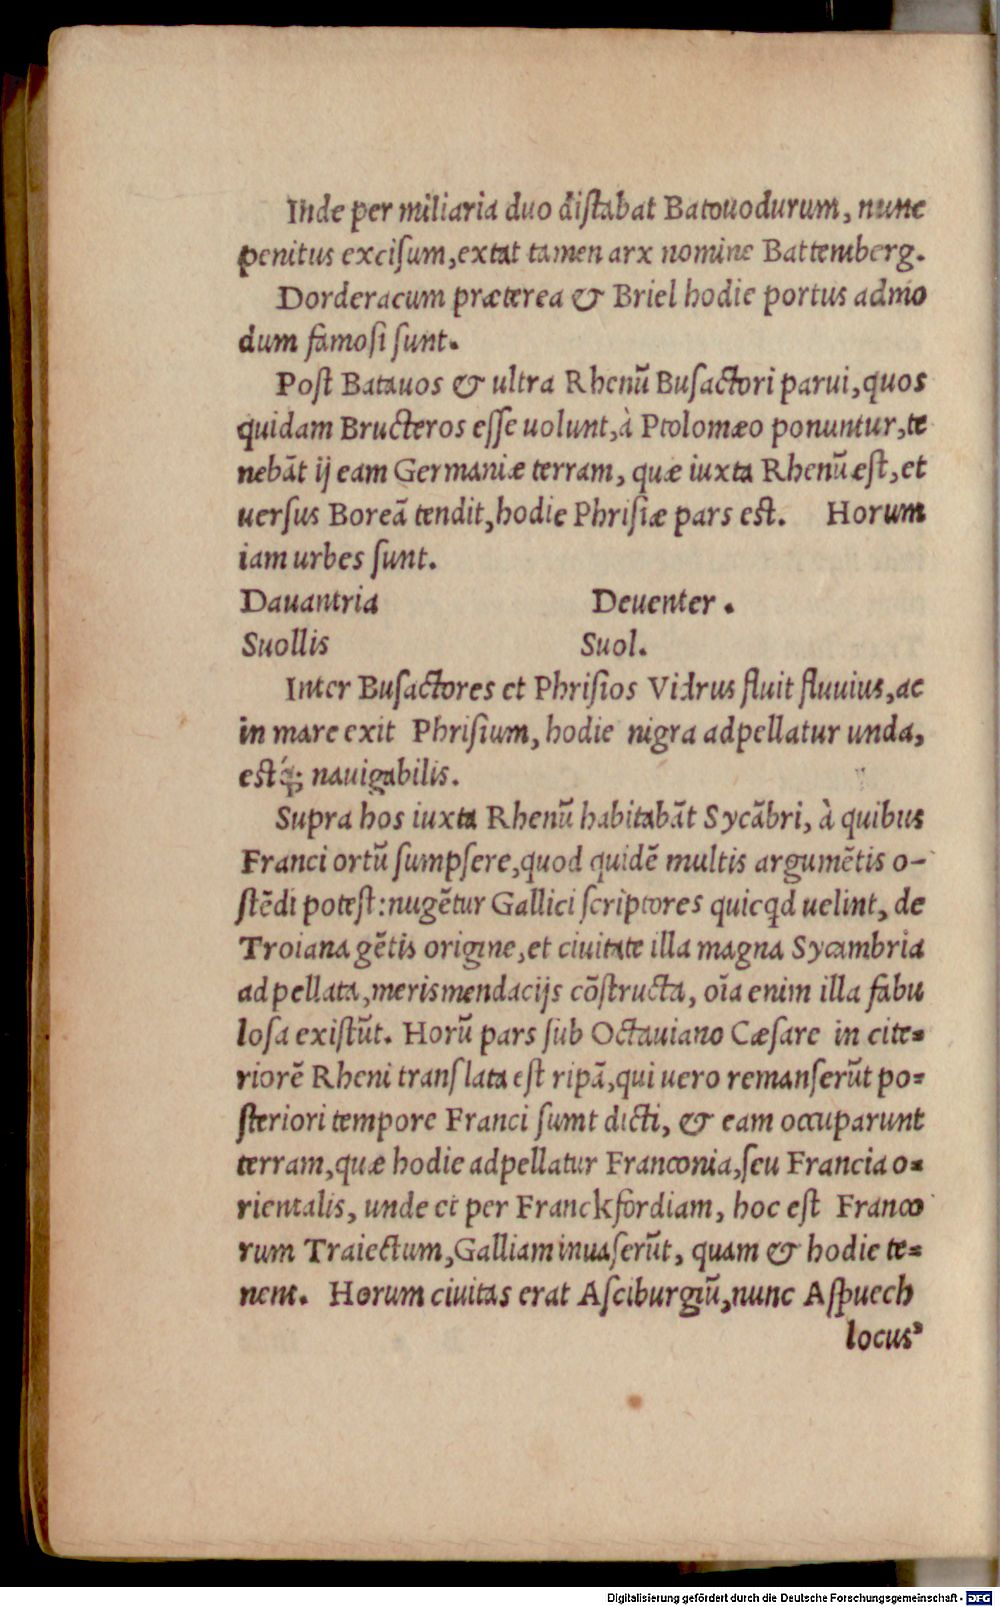 Inde per miliaria duo diſtabat Batouodurum, nunc
penitus exciſum, extat tamen arx nomine Battemberg.
Dorderacum præterea & Briel hodie portus admo
dum famoſi ſunt.
Poſt Batauos & ultra Rhenũ Buſactori parui, quos
quidam Bructeros eſſe uolunt, à Ptolomæo ponuntur, te
nebãt ij eam Germaniæ terram, quæ iuxta Rhenũ eſt, et
uerſus Boreã tendit, hodie Phriſiæ pars est. Horum
iam urbes ſunt.
Dauantria Deuenter.
Suollis Suol.
Inter Buſactores et Phriſios Vidrus fluit fluuius, ac
in mare exit Phriſium, hodie nigra adpellatur unda,
estq́; nauigabilis.
Supra hos iuxta Rhenũ habitabãt Sycãbri, à quibus
Franci ortũ ſumpſere, quod quidẽ multis argumẽtis o-
ſtẽdi poteſt: nugẽtur Gallici ſcriptores quicq̃d uelint, de
Troiana gẽtis origine, et ciuitate illa magna Sycambria
adpellata, meris mendacijs cõſtructa, oĩa enim illa fabu
loſa exiſtũt. Horũ pars ſub Octauiano Cæſare in cite=
riorẽ Rheni translata eſt ripã, qui uero remanſerũt po=
ſteriori tempore Franci ſunt dicti, & eam occuparunt
terram, quæ hodie adpellatur Franconia, ſeu Francia o=
rientalis, unde et per Franckfordiam, hoc eſt Franco
rum Traiectum, Galliam inuaſerũt, quam & hodie te=
nent. Horum ciuitas erat Aſciburgiũ, nunc Aſpuech
locus
Digitalisierung gefördert durch die Deutsche Forschungsgemeinschaft - DFG